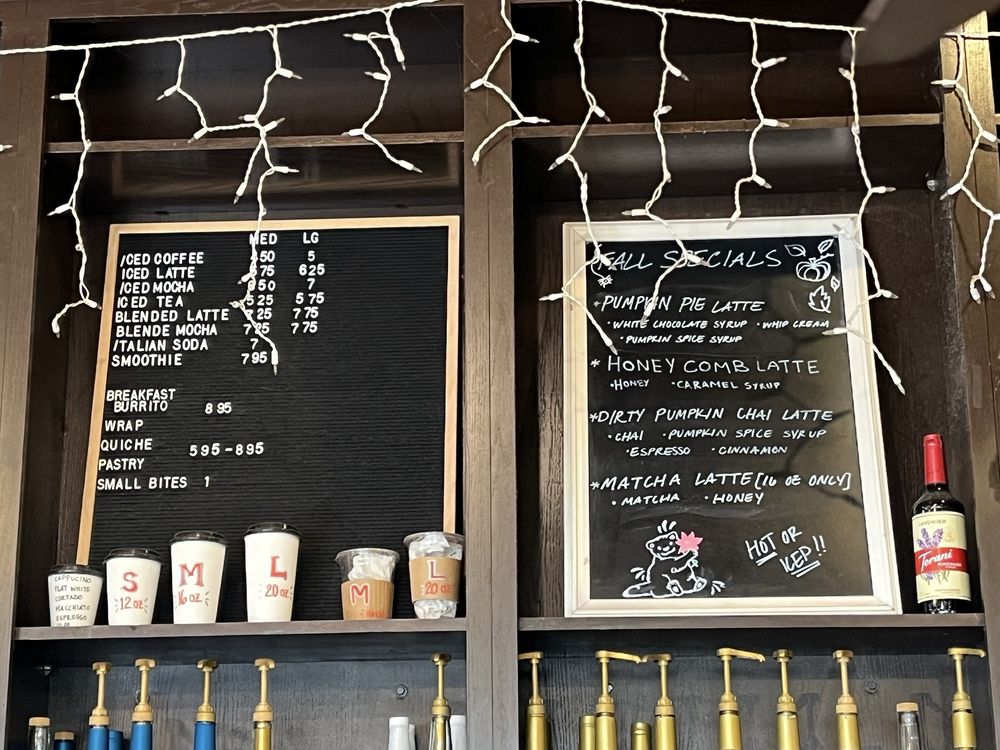 MED LG
ICED COFFEE 450 5
ICED LATTE 575 625
ICED MOCHA 650 7
ICED TEA 525 575
BLENDED LATTE 725 775
BLENDE MOCHA 725 775
ITALIAN SODA 7
SMOOTHIE 795
BREAKFAST
BURRITO 895
WRAP
QUICHE 595-895
PASTRY
SMALL BITES 1
FALL SPECIALS
*PUMPKIN PIE LATTE
•WHITE CHOCOLATE SYRUP •WHIP CREAM
•PUMPKIN SPICE SYRUP
*HONEY COMB LATTE
•HONEY •CARAMEL SYRUP
*DIRTY PUMPKIN CHAI LATTE
•CHAI •PUMPKIN SPICE SYRUP
•ESPRESSO •CINNAMON
*MATCHA LATTE [16 OZ ONLY]
•MATCHA •HONEY
HOT OR
ICED!!
CAPPUCINO
FLAT WHITE
CORTADO
MACCHIATO
ESPRESSO
S
12 oz
M
16 oz
L
20 oz
M
L
20 oz
LAVENDER
Torani